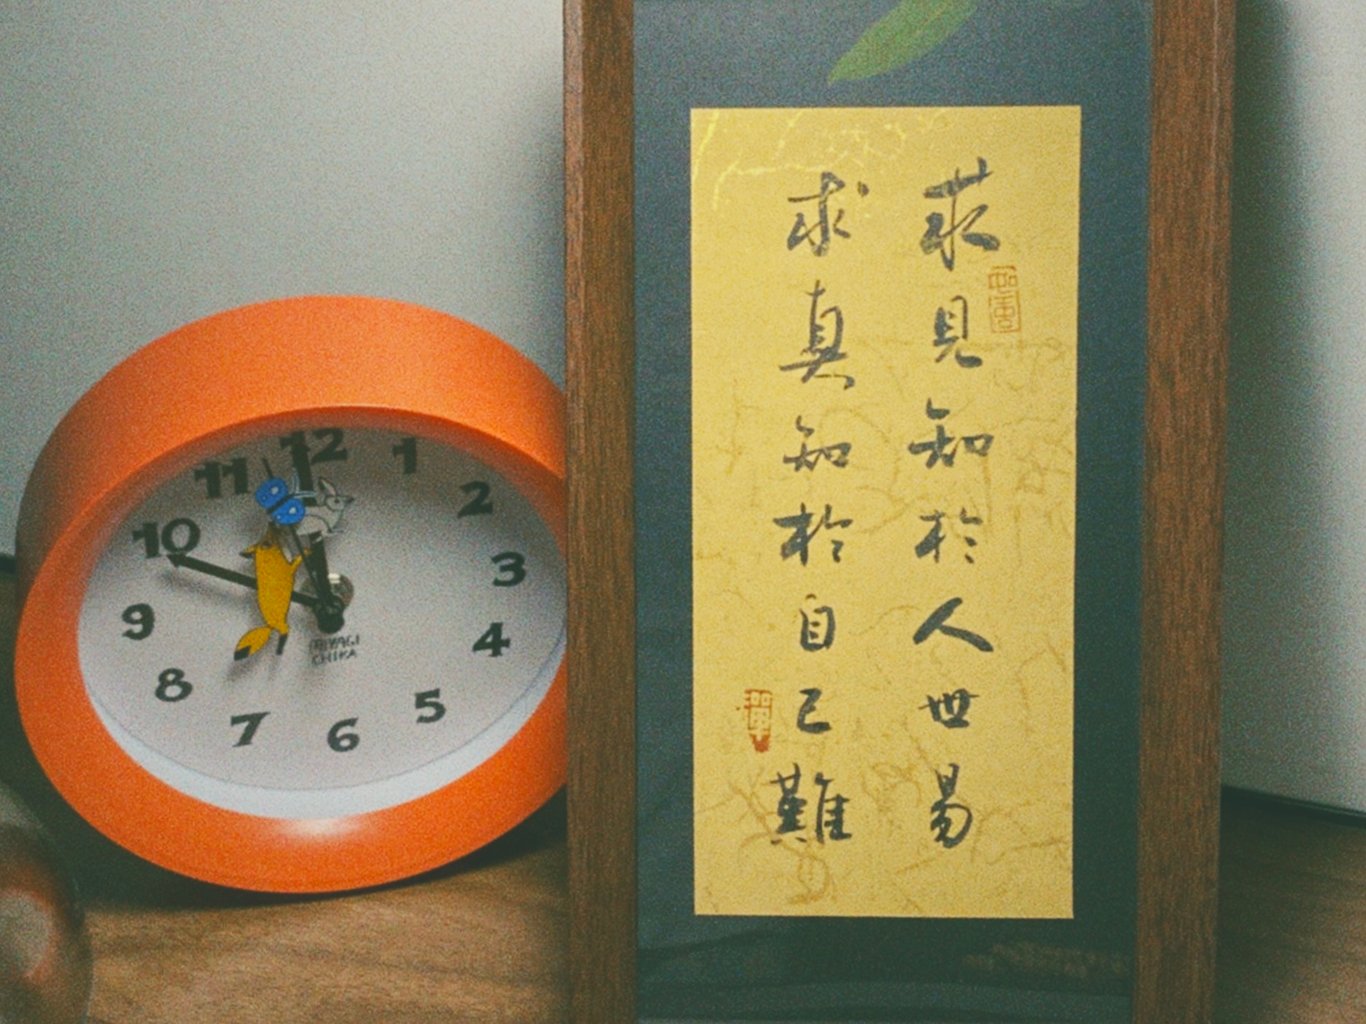 求見知於人世易
求真知於自己難
12
1
2
3
4
5
6
7
8
9
10
11
CHIKA